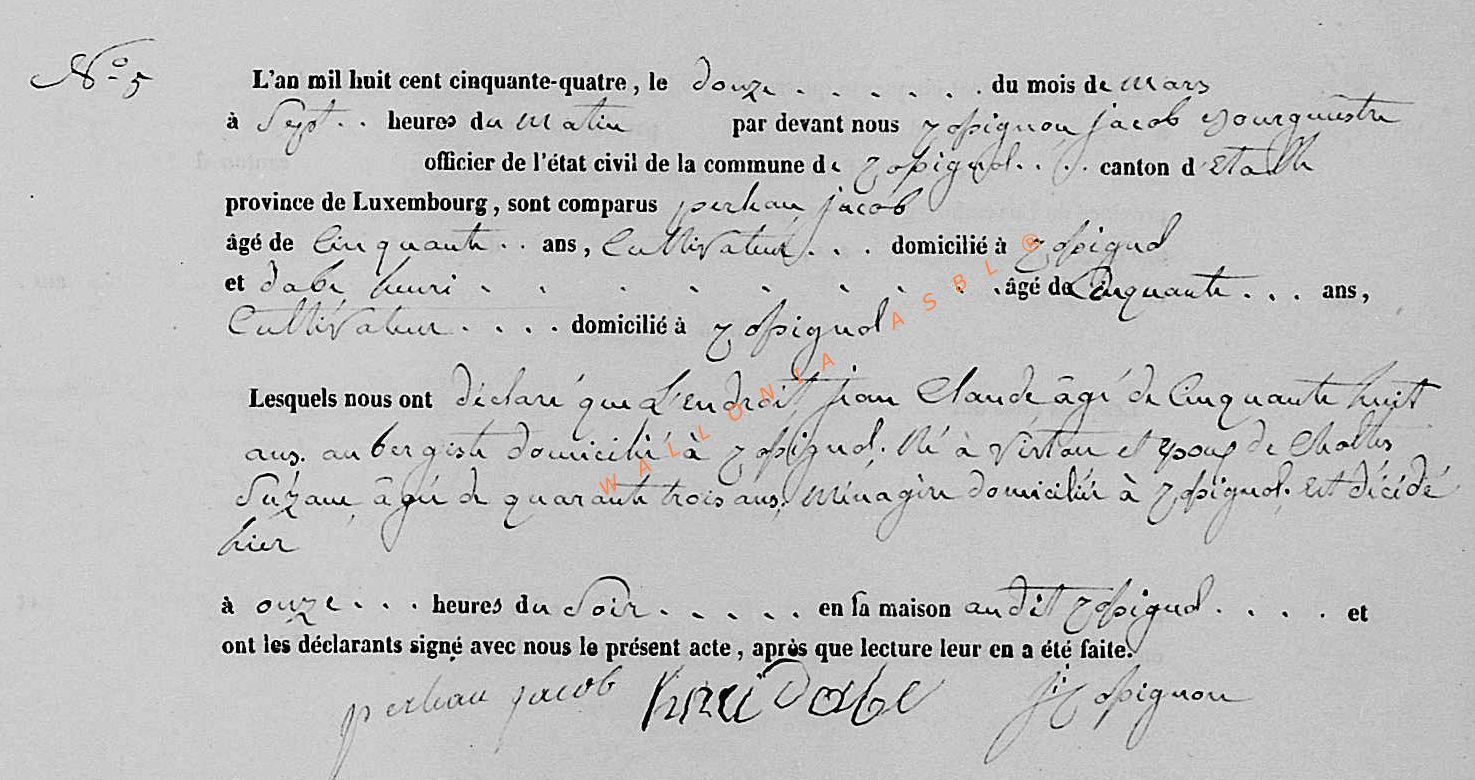 N° 5
L'an mil huit cent cinquante-quatre, le douze . . . . . . du mois de mars
à Sept . . heures du matin par devant nous jacob Bourgmestre
officier de l'état civil de la commune de . . . canton d'Etalle
province de Luxembourg, sont comparus perleau jacob
âgé de Cinquante . . ans, Cultivateur . . . domicilié à
et dabe henri . . . . . . . . âgé de Cinquante . . . ans,
Cultivateur . . . . domicilié à
WALLONIA ASBL ®
Lesquels nous ont déclaré que Lendroit jean Claude âgé de Cinquante huit
ans. aubergiste domicilié à . Né à Virton et Epoux de
Suzane, âgée de quarante trois ans, Ménagère domiciliée à . est décédé
hier
à onze . . . heures du Soir . . . . . en sa maison audit . . . . et
ont les déclarants signé avec nous le présent acte, après que lecture leur en a été faite.
perleau jacob henri Dabe